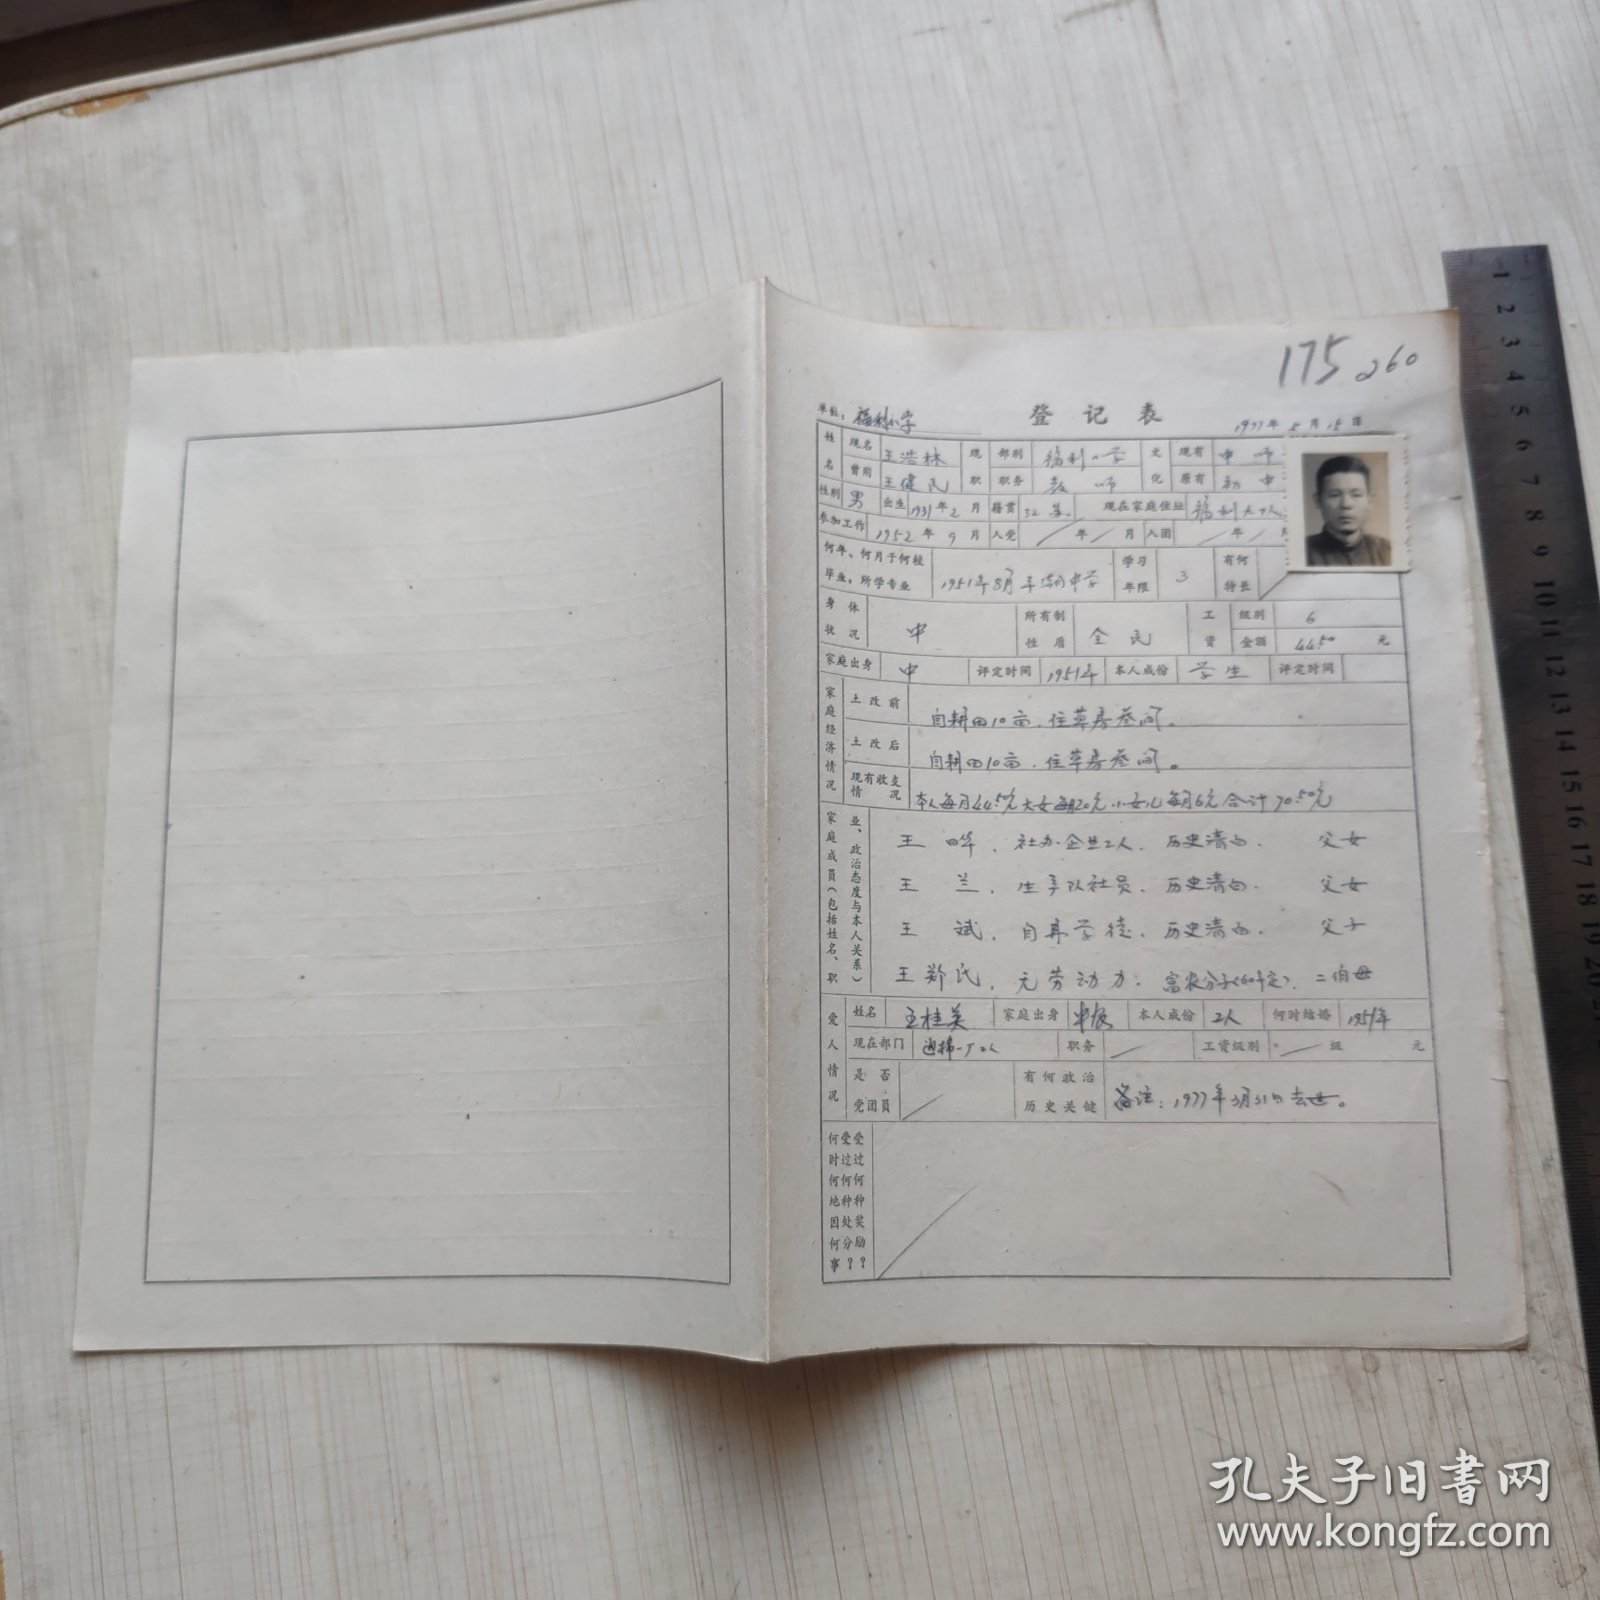 175 260
单位：福利小学 登记表 1977年5月15日
姓名 现名 王浩林 现职 部别 福利小学 文化 现有 中师
曾用 王健民 职务 教师 原有 初中
性别 男 出生 1931年2月 籍贯 江苏 现在家庭住址 福利
参加工作 1952年9月 入党 年 月 入团 年 月
何年、何月于何校毕业，所学专业 1951年8月 中学 学习年限 3 有何特长
身体状况 中 所有制性质 全民 工资 级别 6
金额 44.50 元
家庭出身 中 评定时间 1951年 本人成份 学生 评定时间
家庭经济情况 土改前 自耕田10亩，住草房叁间。
土改后 自耕田10亩，住草房叁间。
现有收支情况 本人每月44.50元大女每月20元小女儿每月6元合计70.50元
家庭成员（包括姓名、职业、政治态度与本人关系）
王 晔，社办企业工人，历史清白， 父女
王 兰，生产队社员，历史清白， 父女
王 斌，自弄学德，历史清白， 父子
王郑氏，无劳动力，富农分子（60年定），二伯母
爱人情况 姓名 王桂英 家庭出身 本人成份 工人 何时结婚 1951年
现在部门 棉一厂工人 职务 工资级别 级 元
是否党团员 有何政治历史关键 备注：1977年3月31日去世。
何时何地因何事受过何种处分？受过何种奖励？
1 2 3 4 5 6 7 8 9 10 11 12 13 14 15 16 17 18 19 20
孔夫子旧书网
www.kongfz.com